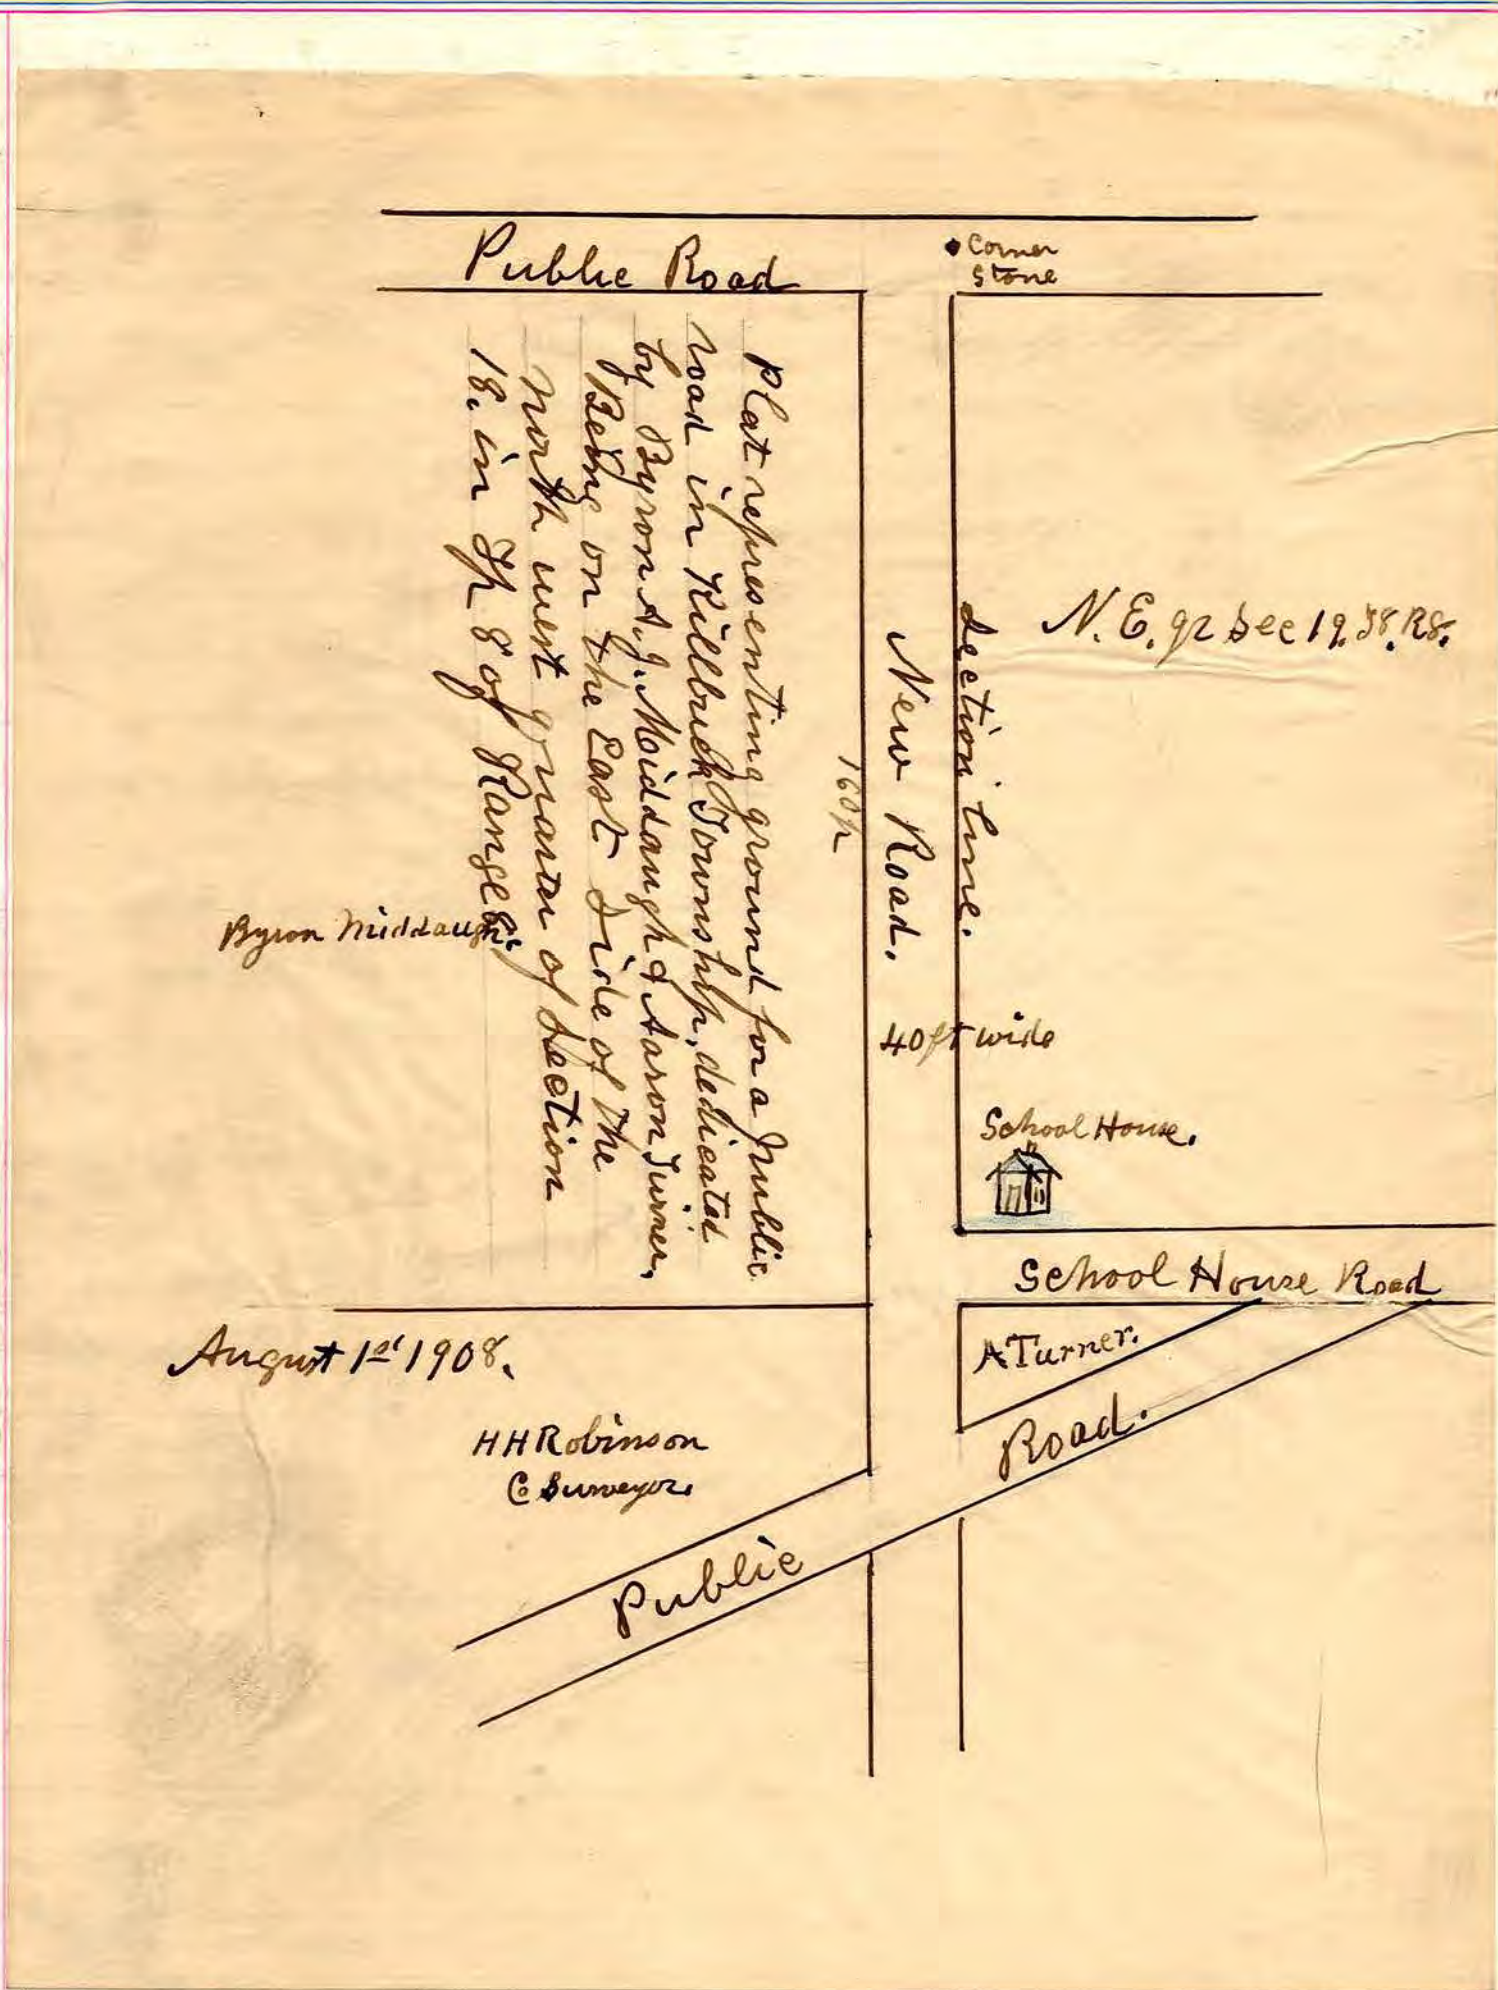 Public Road
Corner
Stone
Plat representing ground for a Public
road in Killbuck Township, dedicated
by Byron A.J. Middaugh & Aaron Turner,
Being on the East Side of the
North west quarter of Section
18. in Tp 8 of Range 8.
160p
New Road.
Section line.
N.E. qr Sec 19. T8. R8.
Byron Middaugh
40 ft wide
School House.
School House Road
A Turner.
August 1st 1908.
H H Robinson
Co Surveyor.
Public Road.